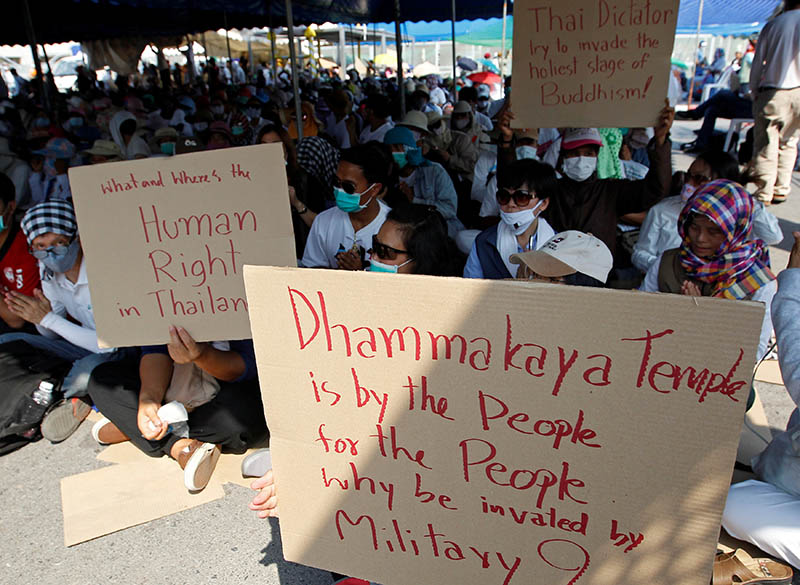 Thai Dictator
try to invade the
holiest stage of
Buddhism!
what and where's the
Human
Right
in Thailan
Dhammakaya Temple
is by the People
for the People
why be invated by
Military ?